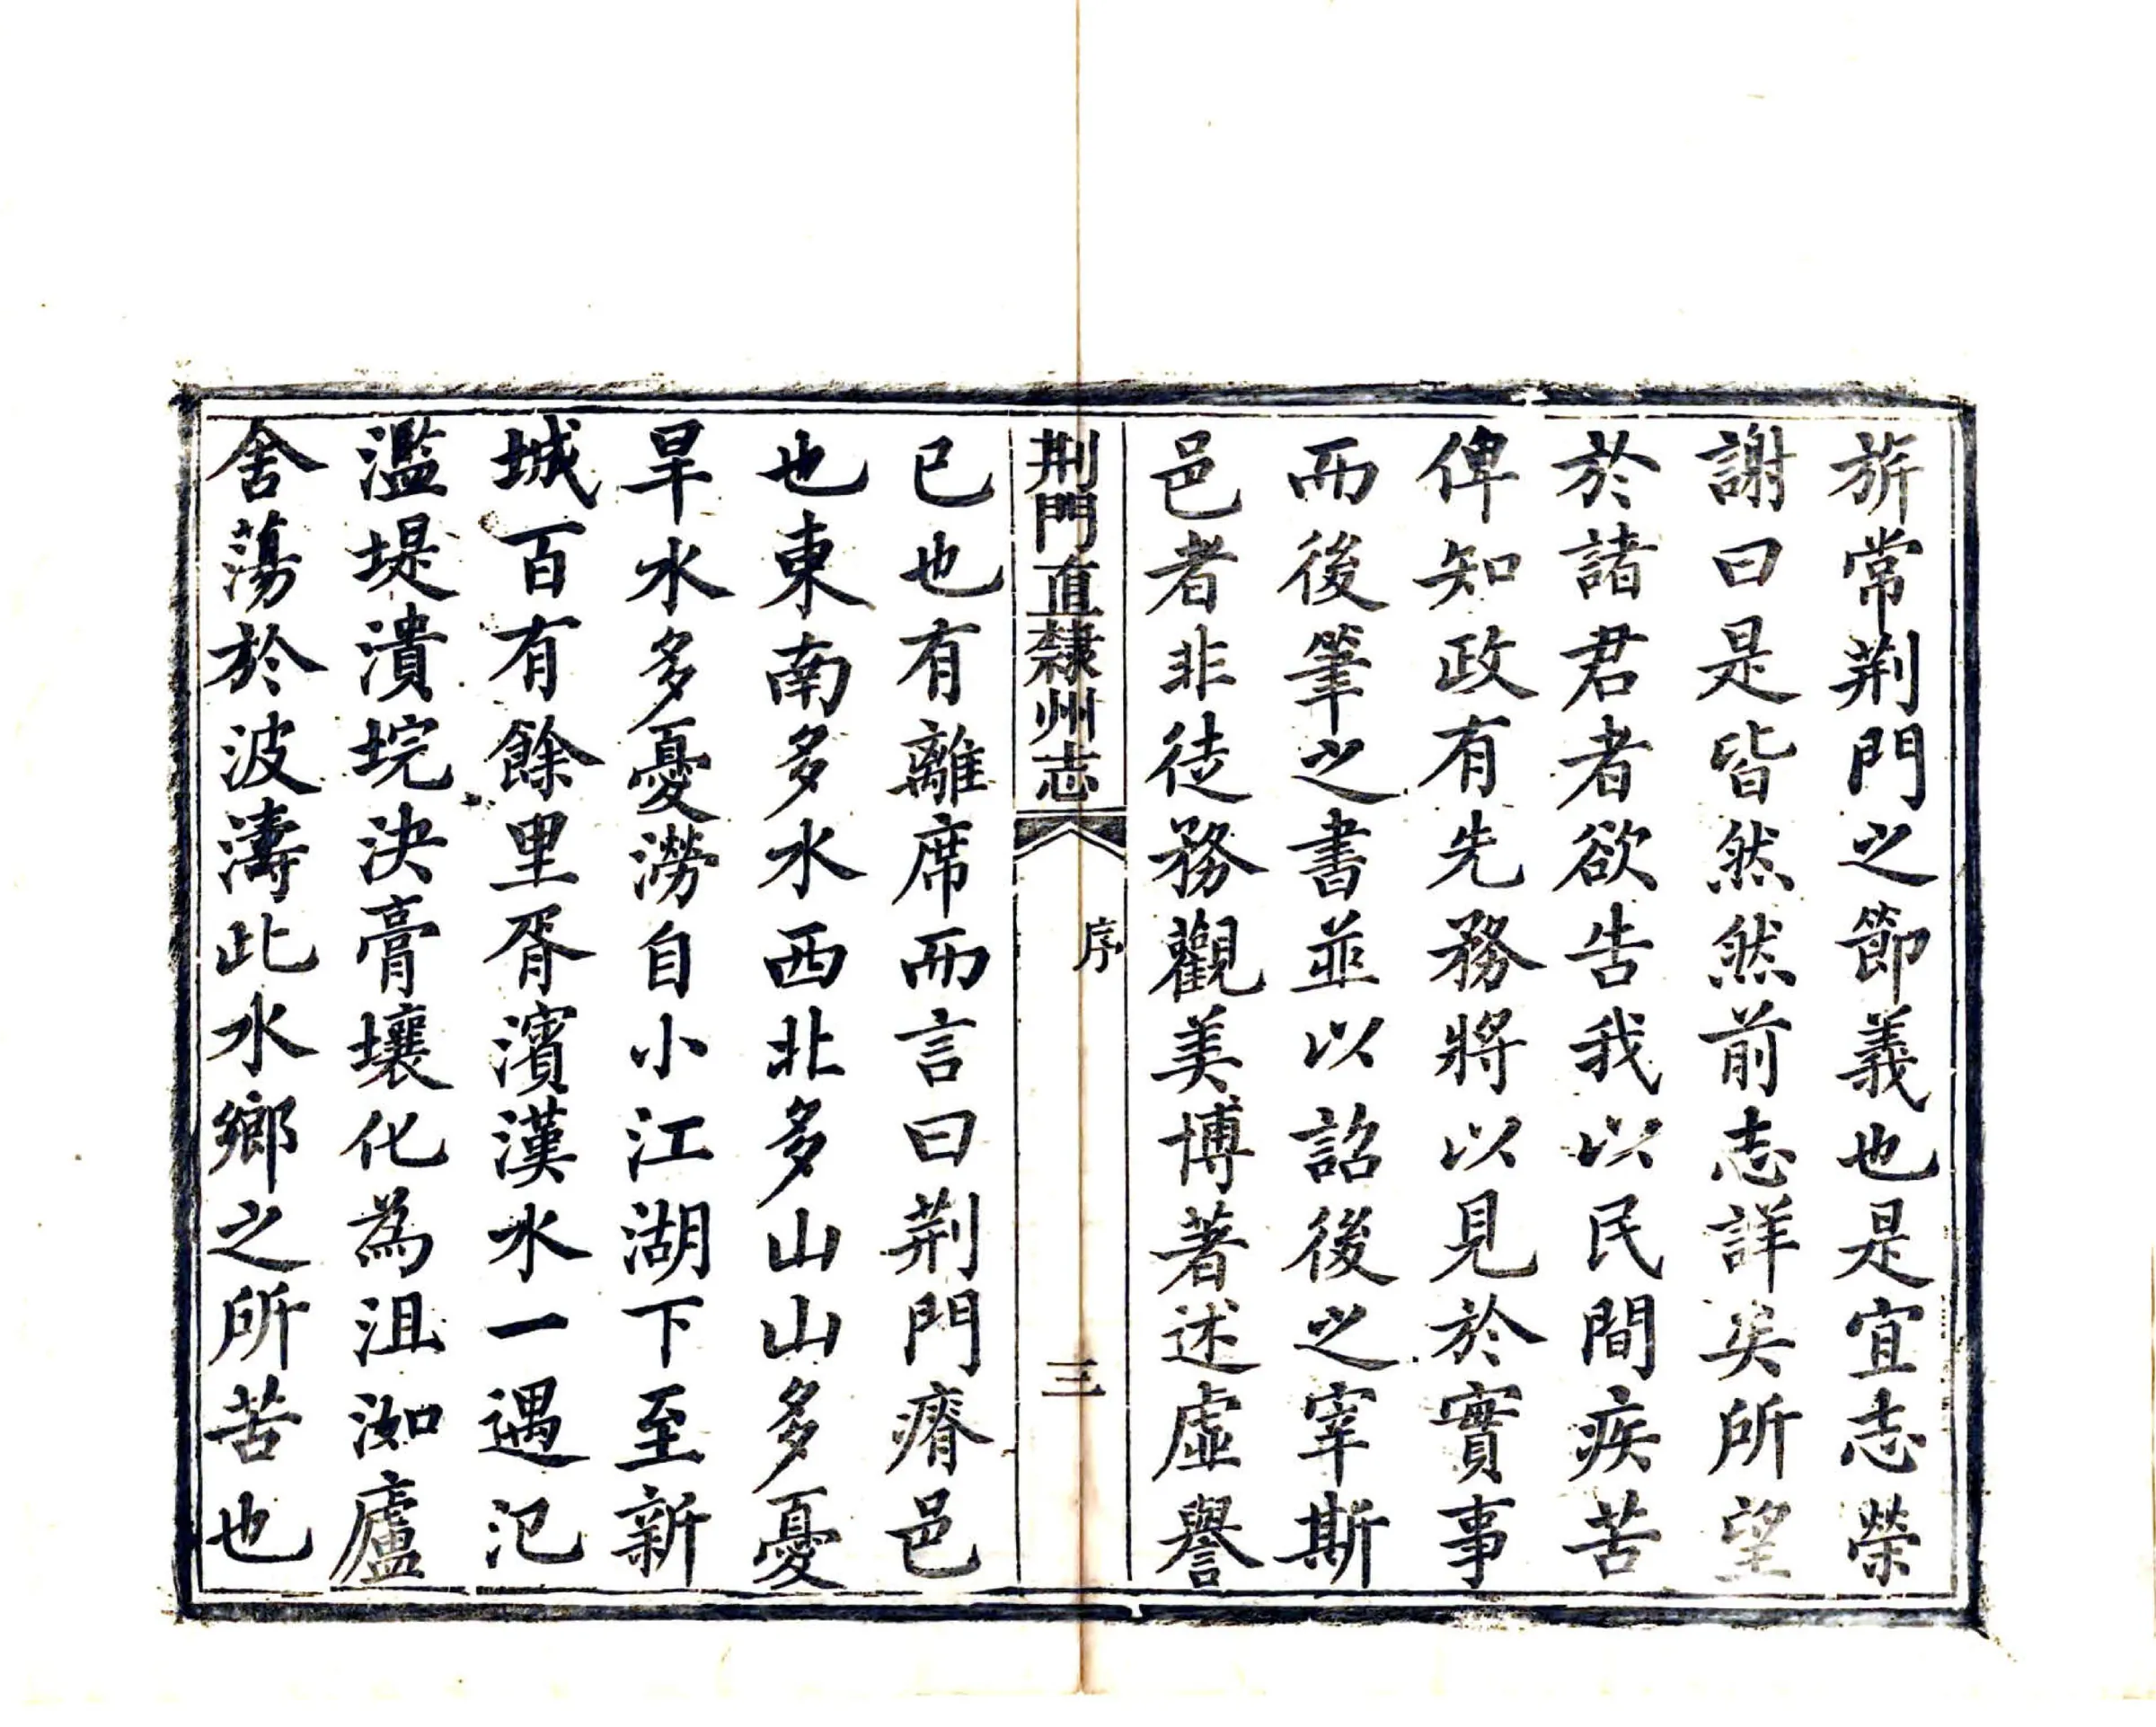 旂常荆門之節義也是宜志榮
謝曰是皆然然前志詳矣所望
於諸君者欲告我以民間疾苦
俾知政有先務將以見於實事
而後筆之書並以詔後之宰斯
邑者非徒務觀美博著述虛譽
荆門直隸州志
序
三
已也有離席而言曰荆門瘠邑
也東南多水西北多山山多憂
旱水多憂澇自小江湖下至新
城百有餘里胥濱漢水一遇氾
濫堤潰垸決膏壤化為沮洳廬
舍蕩於波濤此水鄉之所苦也